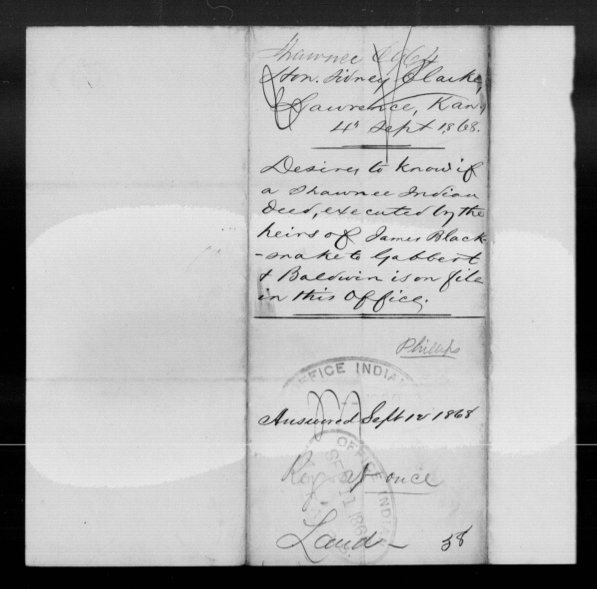 Shawnee C 664
Hon. Sidney Clarke,
Lawrence, Kan,
4" Sept 1868.
Desires to know if
a Shawnee Indian
Deed, executed by the
heirs of James Black-
-snake to Gabbert
& Baldwin is on file
in this Office.
Phillips
OFFICE INDIA
Answered Sept 12 1868
OFFICE INDIAN
SEP 11 186
Rep. at once
Land
58